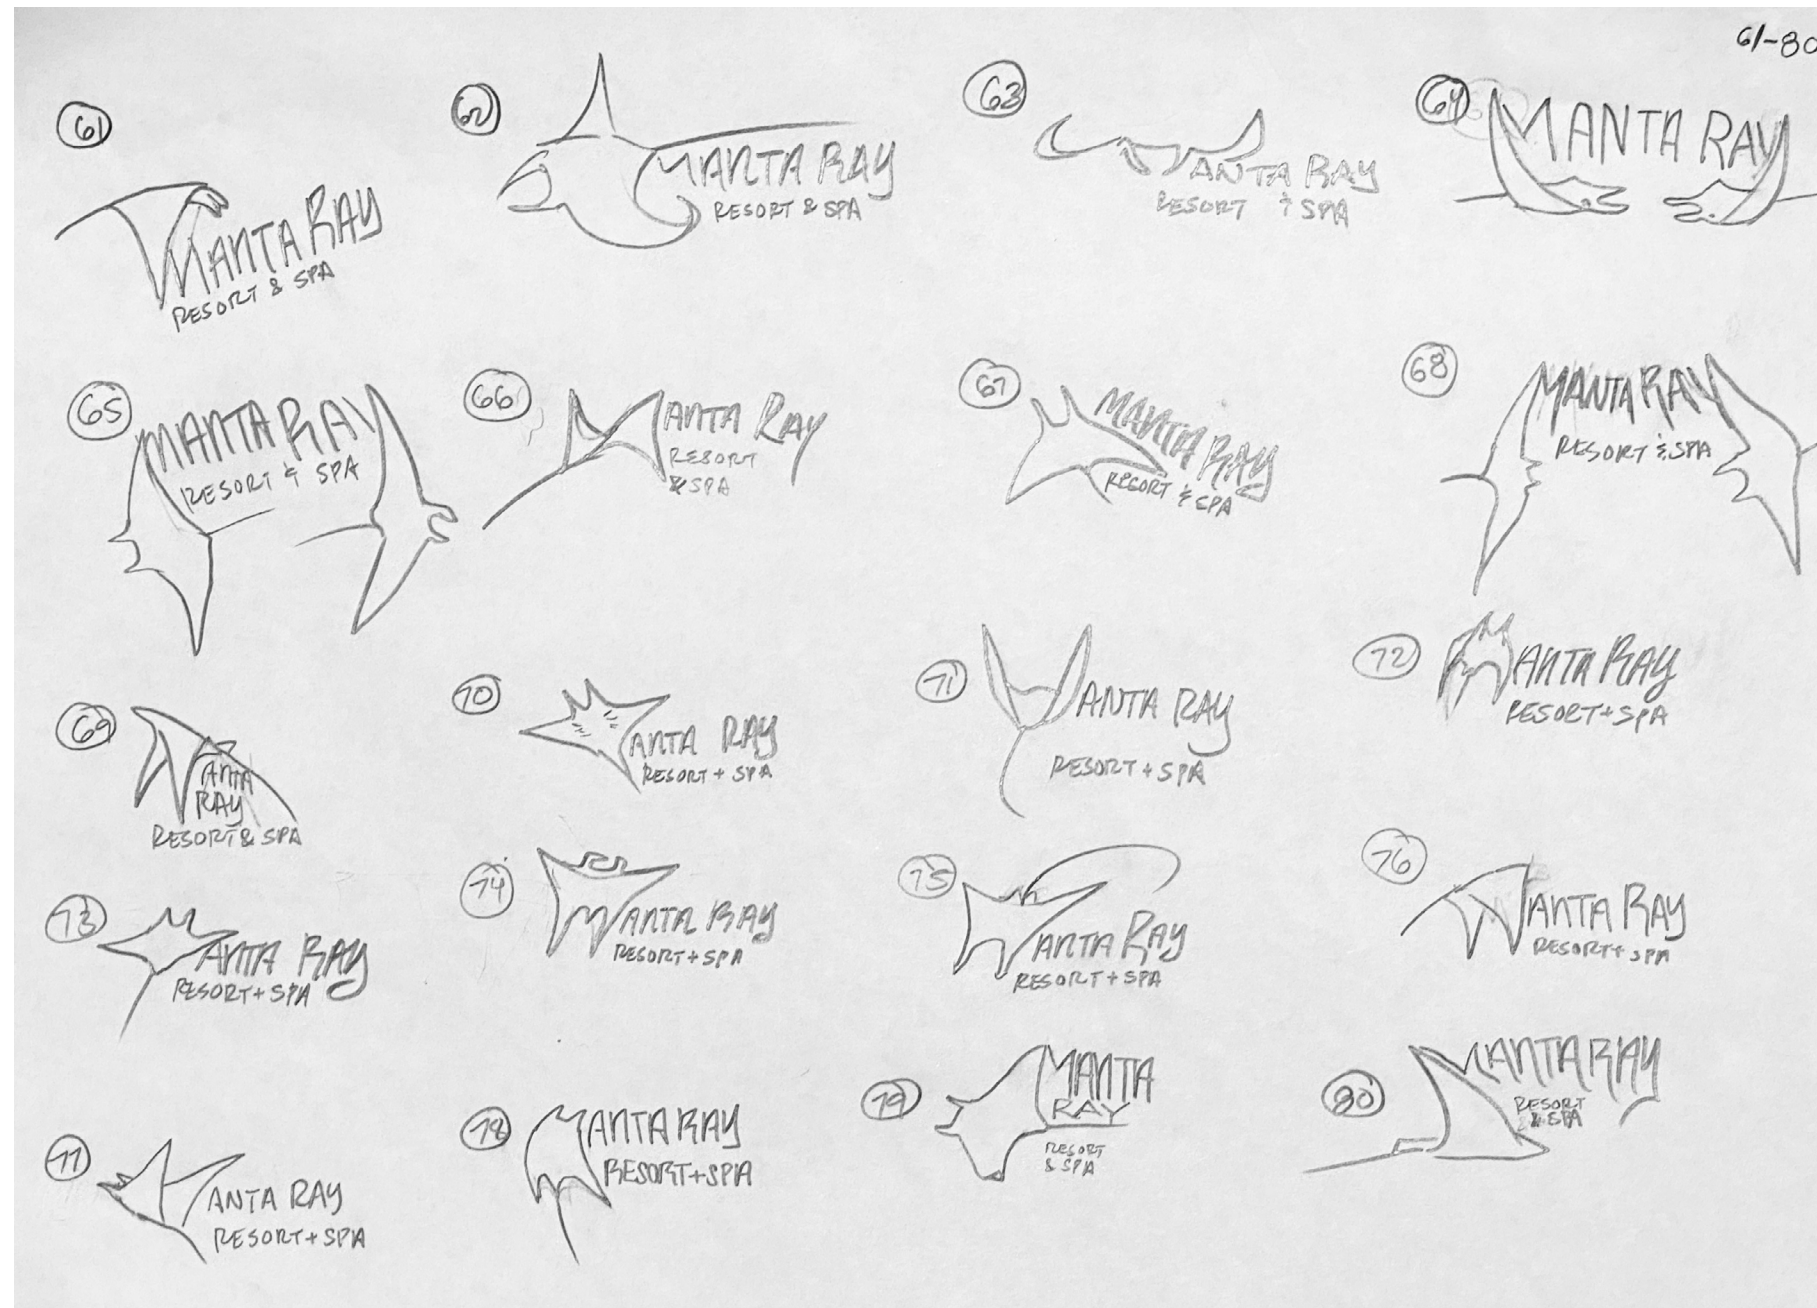 61-80
61
MANTA RAY
RESORT & SPA
62
MANTA RAY
RESORT & SPA
63
MANTA RAY
RESORT & SPA
64
MANTA RAY
65
MANTA RAY
RESORT & SPA
66
MANTA RAY
RESORT
& SPA
67
MANTA RAY
RESORT & SPA
68
MANTA RAY
RESORT & SPA
69
MANTA
RAY
RESORT & SPA
70
MANTA RAY
RESORT + SPA
71
MANTA RAY
RESORT + SPA
72
MANTA RAY
RESORT + SPA
73
MANTA RAY
RESORT + SPA
74
MANTA RAY
RESORT + SPA
75
MANTA RAY
RESORT + SPA
76
MANTA RAY
RESORT + SPA
77
MANTA RAY
RESORT + SPA
78
MANTA RAY
RESORT + SPA
79
MANTA
RAY
RESORT
& SPA
80
MANTA RAY
RESORT
& SPA